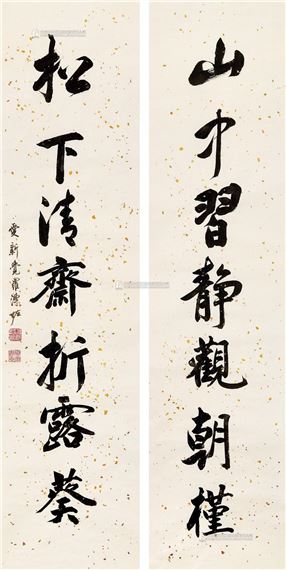 山中習静觀朝槿
松下清齋折露葵
愛新覺羅溥佐